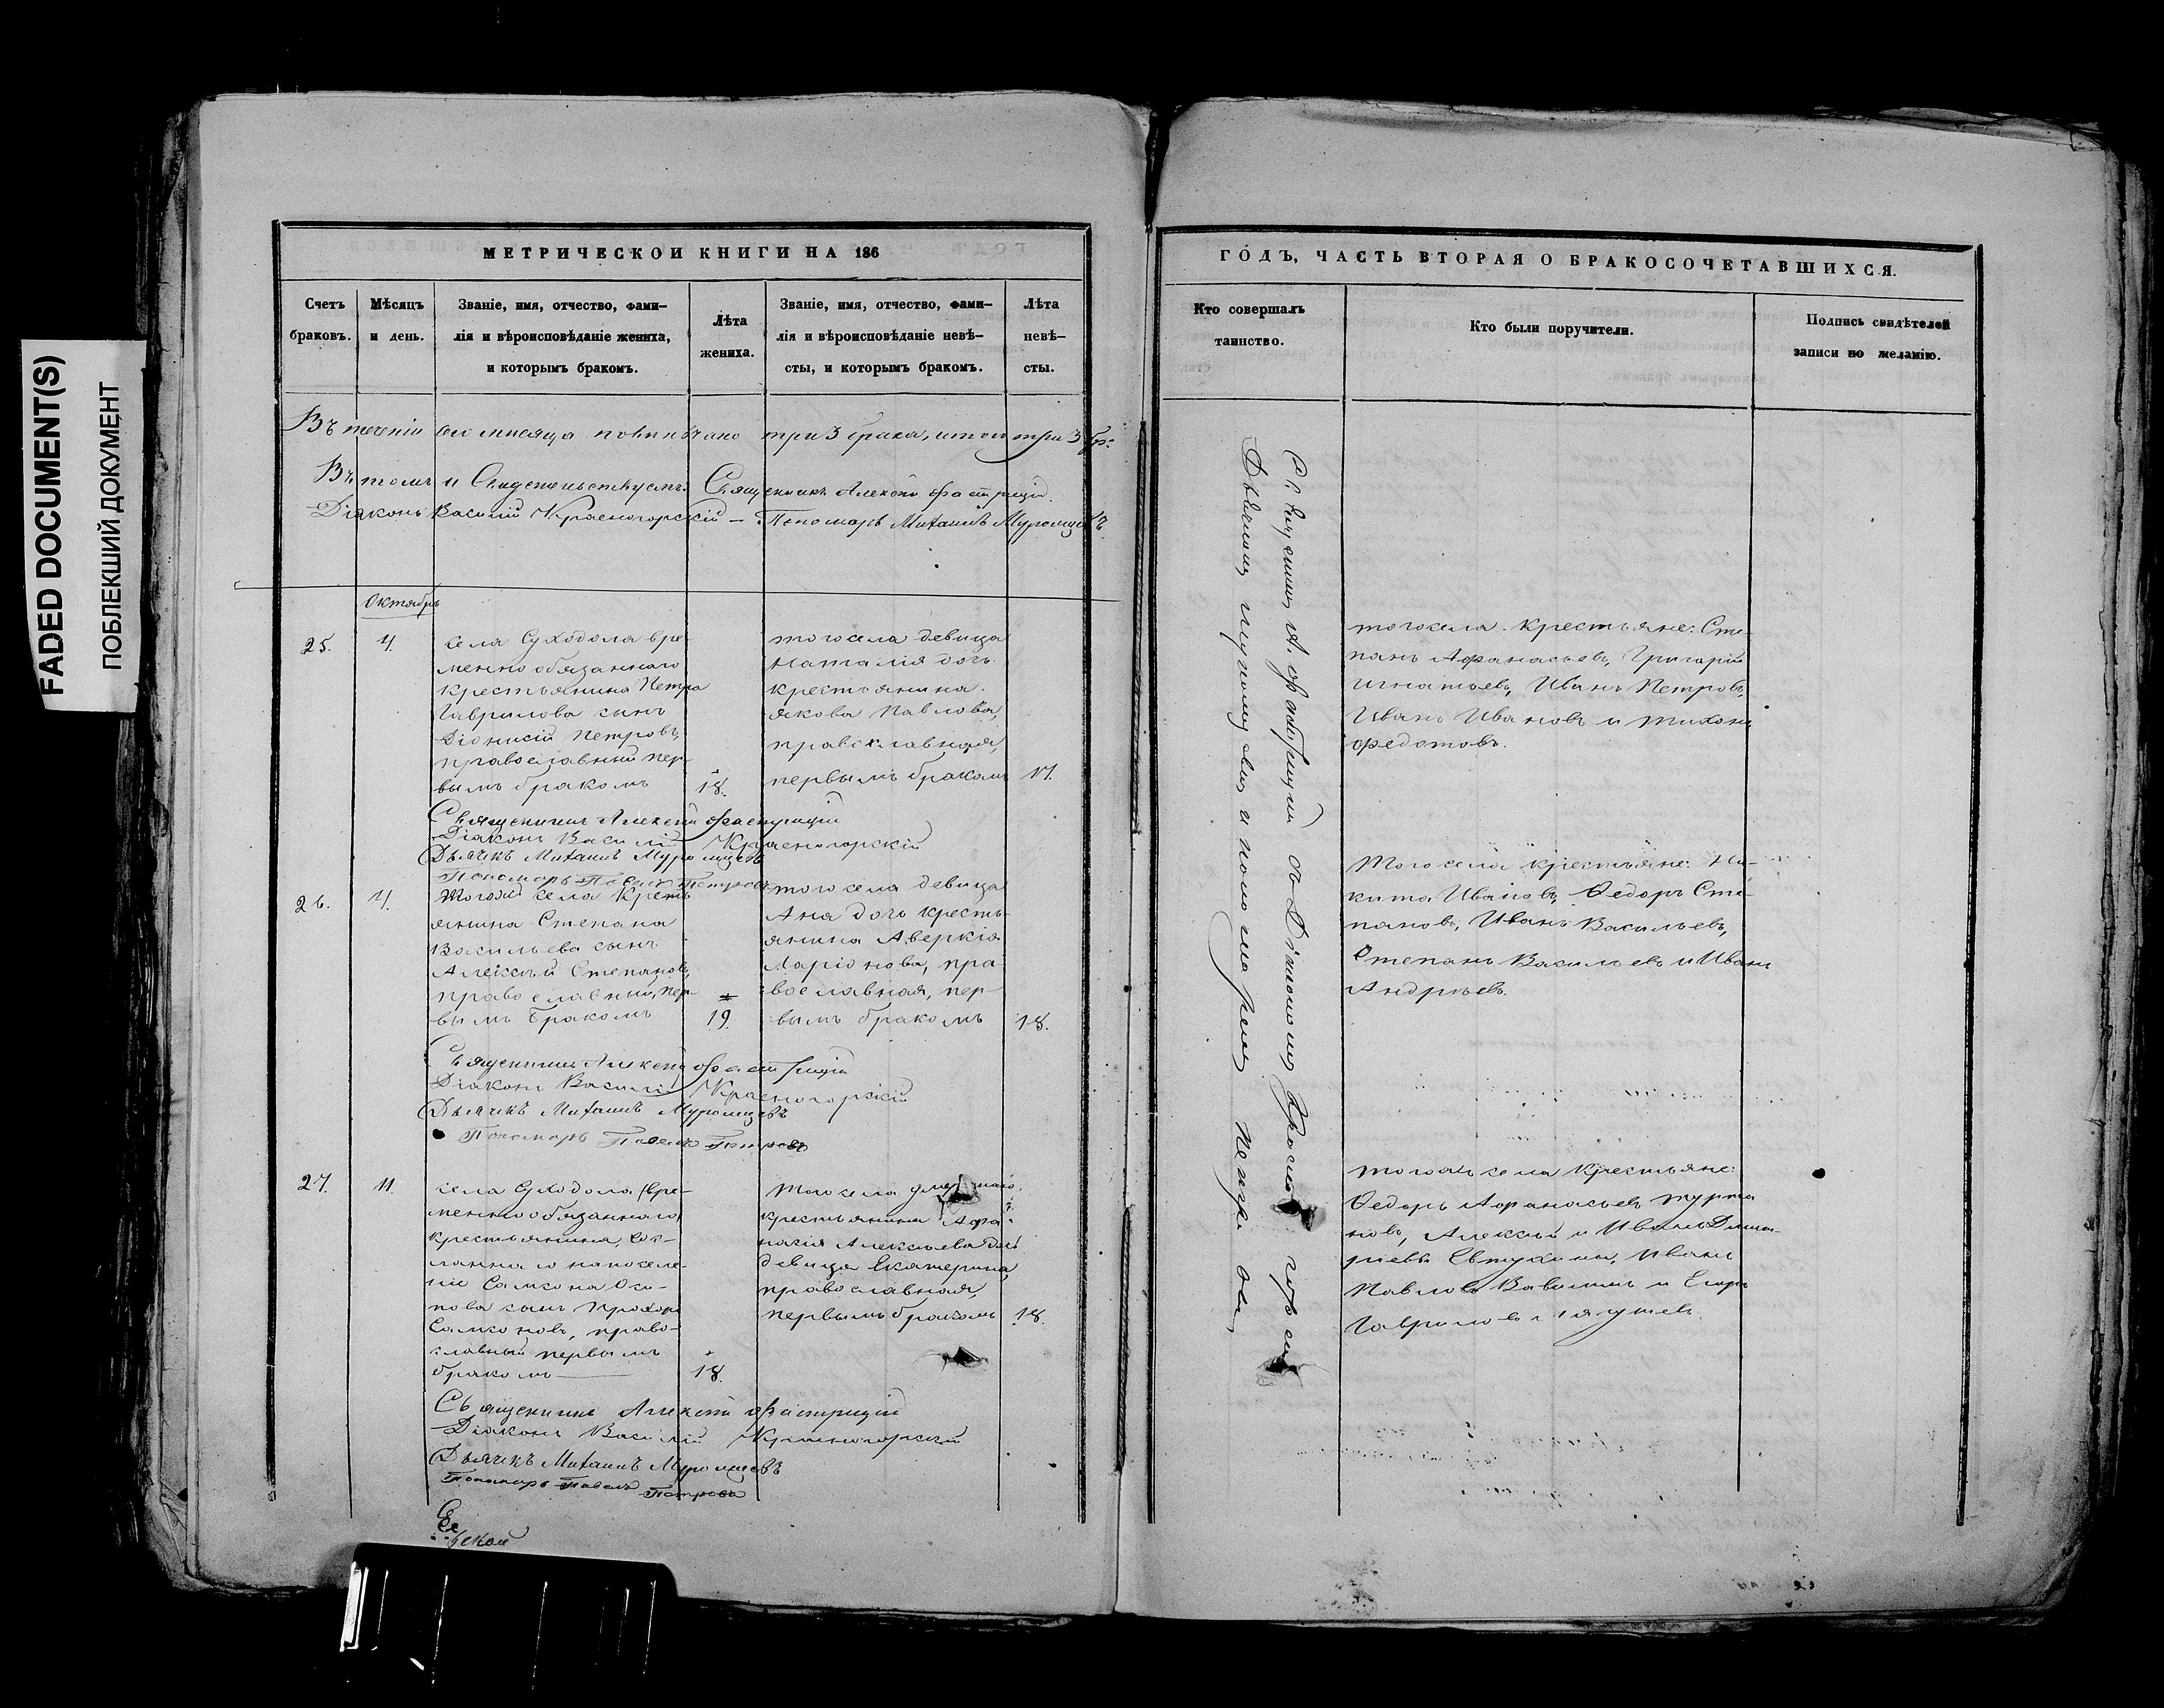 FADED DOCUMENT(S)
ПОБЛЕКШИЙ ДОКУМЕНТ
МЕТРИЧЕСКОЙ КНИГИ НА 186
Счетъ браковъ.
Мѣсяцъ и день.
Званіе, имя, отчество, фами-
лія и вѣроисповѣданіе жениха,
и которымъ бракомъ.
Лѣта
жениха.
Званіе, имя, отчество, фами-
лія и вѣроисповѣданіе невѣ-
сты, и которымъ бракомъ.
Лѣта
невѣ-
сты.
Въ теченіи сего мисяца повинчано три 3 брака, итого три 3 бр:
Въ томъ и Свидетельствуемъ: Священникъ Алексей
Діяконъ Василій Красногорскій – Пономарь Михаилъ Муромцевъ
Октябрь
25.
4.
села Суходола вре-
менно обязаннаго
крестьянина Петра
Гаврилова сынъ
Діонисій Петровъ,
православный пер-
вымъ бракомъ
18.
того села девица
Наталія дочь
крестьянина
Якова Павлова,
православная,
первымъ бракомъ
17.
Священникъ Алексей
Діаконъ Василій Красногорскій
Дьячекъ Михаилъ Муромцевъ
Пономарь Павелъ Петровъ
26.
4.
села Кресть
янина Степана
Васильева сынъ
Алексѣй Степановъ,
православный, пер-
вымъ бракомъ
19.
того села девица
Ана дочь кресть-
янина Аверкія
Ларіонова, пра-
вославная, пер-
вымъ бракомъ
18.
Священникъ Алексей
Діаконъ Василій Красногорскій
Дьячекъ Михаилъ Муромцевъ
Пономарь Павелъ Петровъ
27.
11.
села Суходола вре-
менно обязаннаго
крестьянина, сос-
ланнаго на поселе-
ніе Самсона Оси-
пова сынъ Прохоръ
Самсоновъ, право-
славный первымъ
бракомъ
18.
того села умершаго
крестьянина Афа-
насія Алексѣева дочь
девица Екатерина,
православная,
первымъ бракомъ
18.
Священникъ Алексей
Діаконъ Василій Красногорскій
Дьячекъ Михаилъ Муромцевъ
Пономарь Павелъ Петровъ
ГОДЪ, ЧАСТЬ ВТОРАЯ О БРАКОСОЧЕТАВШИХСЯ.
Кто совершалъ
таинство.
Кто были поручители.
Подпись свидѣтелей
записи по желанію.
того села крестьяне: Сте-
панъ Афанасьевъ, Григорій
Игнатьевъ, Иванъ Петровъ,
Иванъ Ивановъ и Тихонъ
Федотовъ.
Того села крестьяне: Ни-
кита Ивановъ, Ѳедоръ Сте-
пановъ, Иванъ Васильевъ,
Степанъ Васильевъ и Иванъ
Андрѣевъ.
села крестьяне:
Ѳедоръ Афанасьевъ Турта
новъ, Алексѣй и Иванъ Дмит-
ріевы Иванъ
Павловъ и Егоръ
Гавриловъ